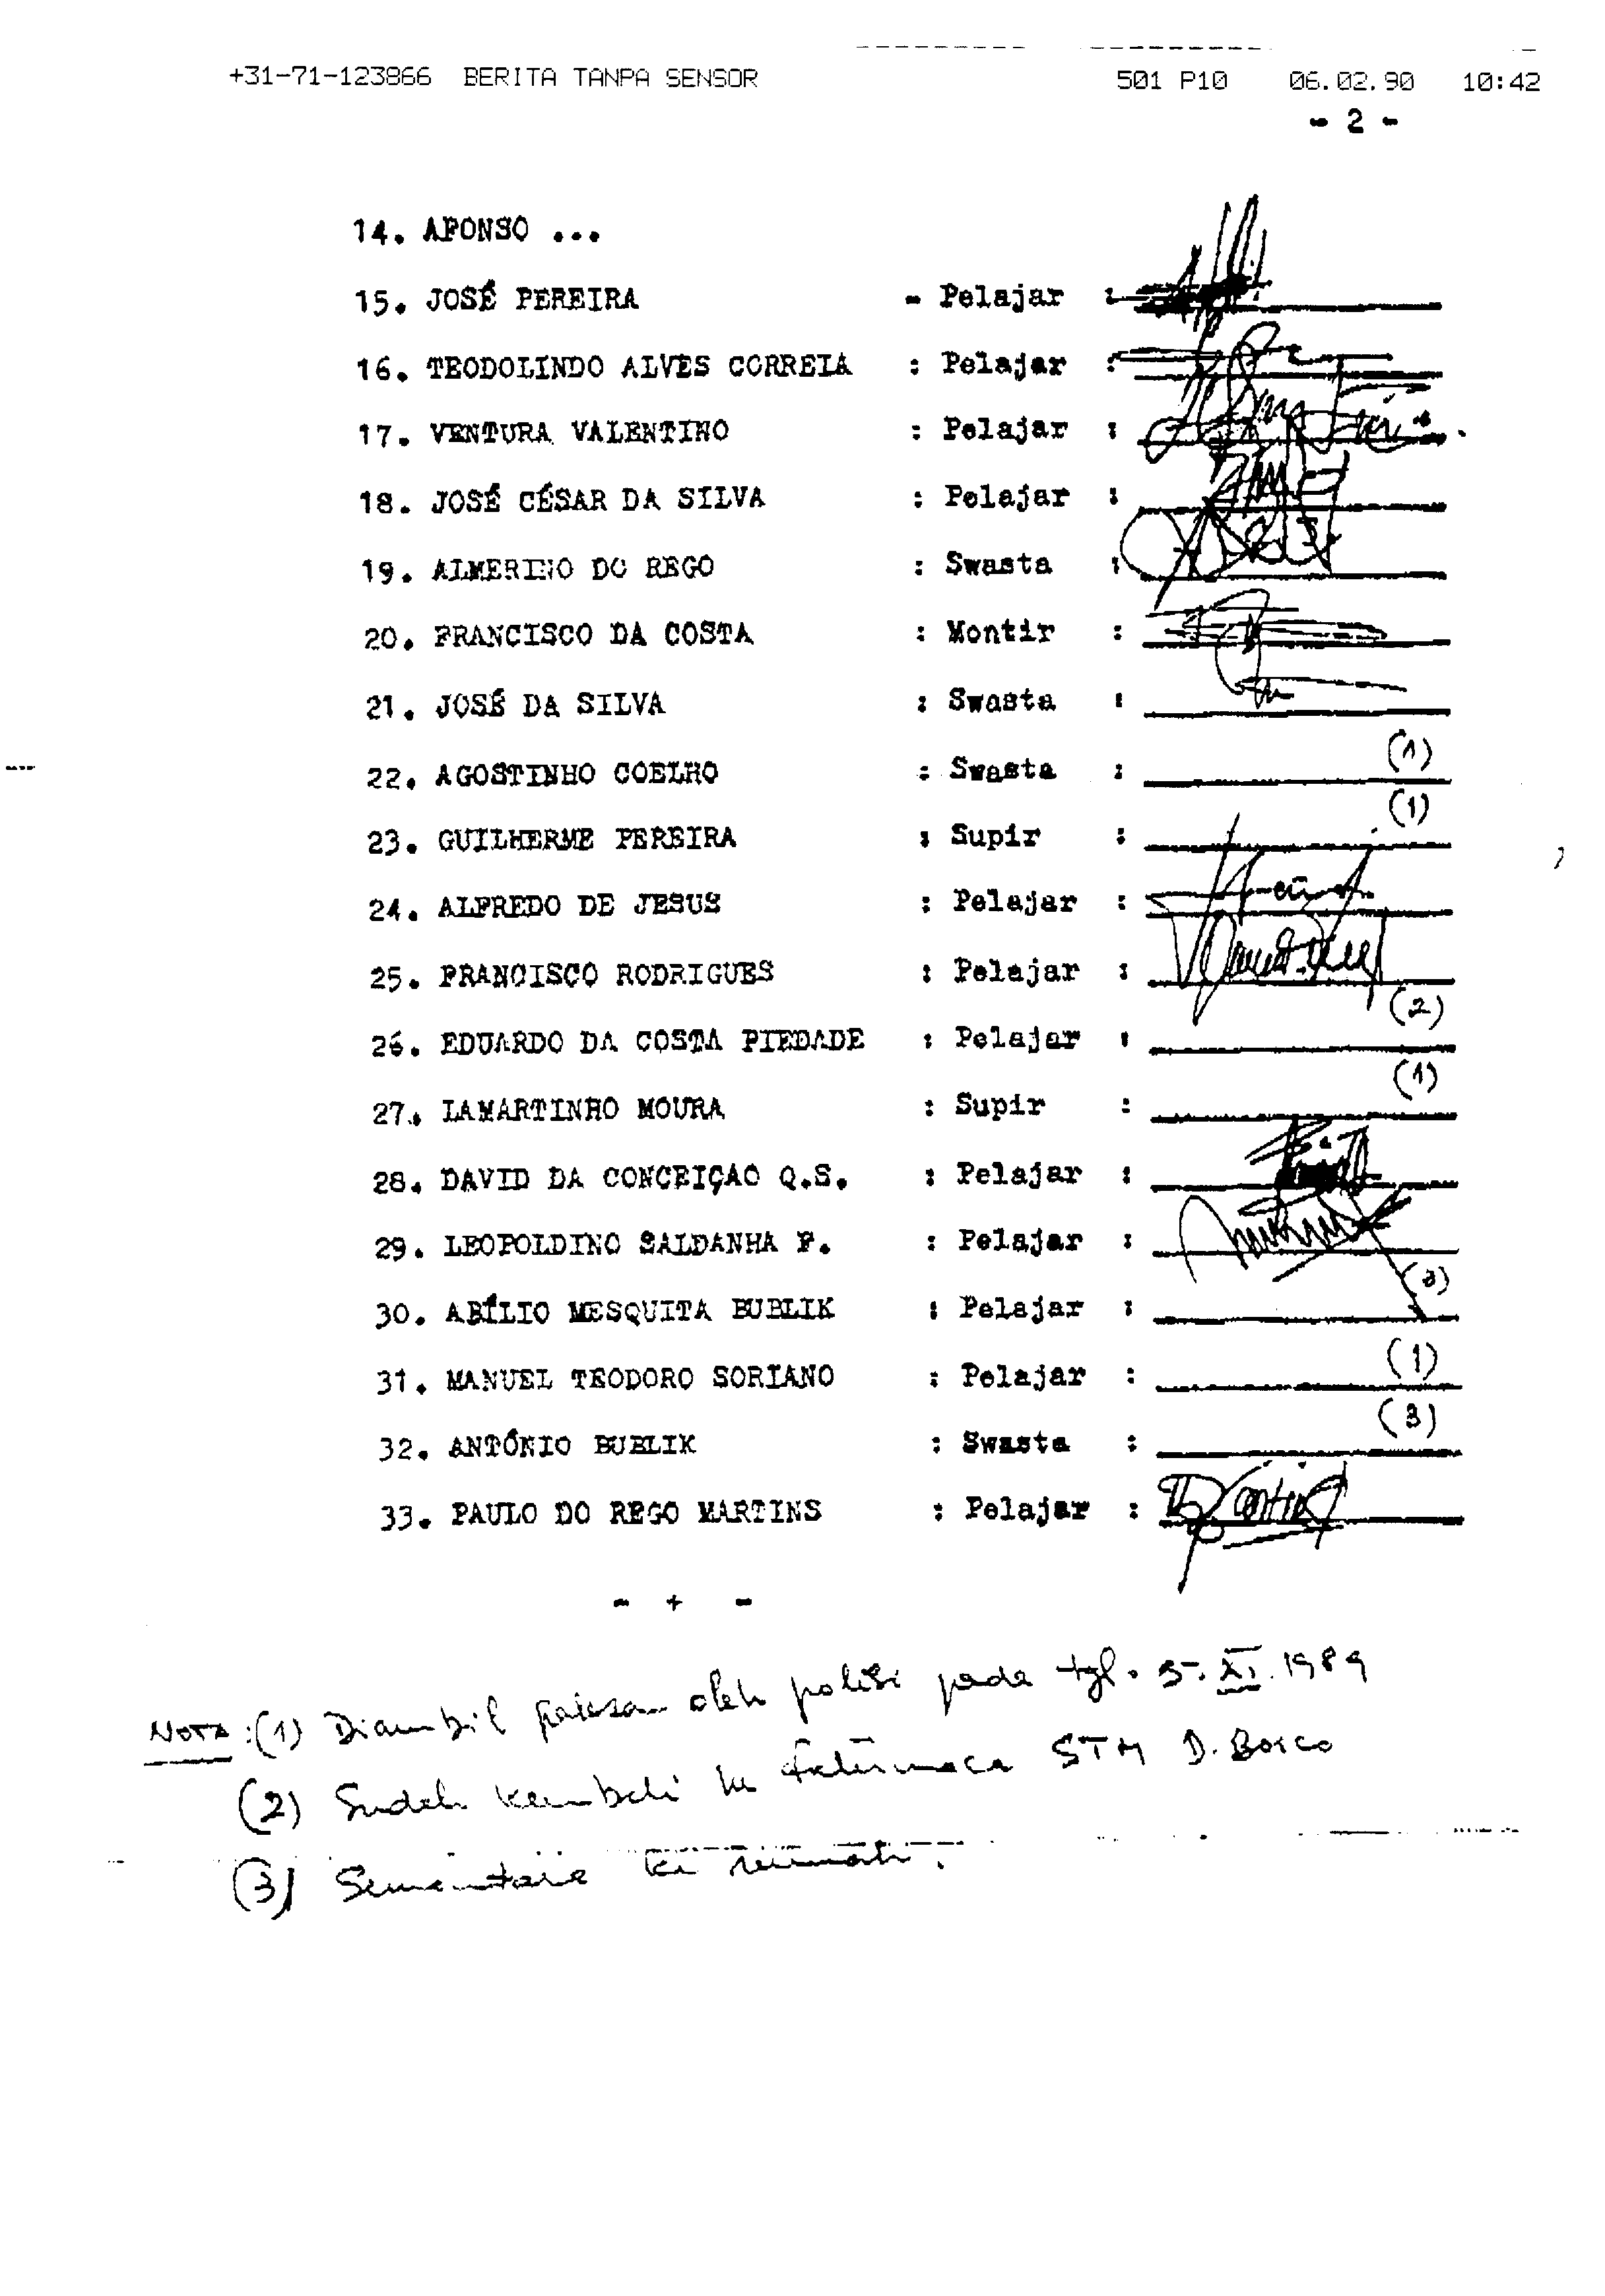 +31-71-123866 BERITA TANPA SENSOR 501 P10 06.02.90 10:42
- 2 -
14. AFONSO ...
15. JOSÉ PEREIRA - Pelajar :
16. TEODOLINDO ALVES CORREIA : Pelajar :
17. VENTURA VALENTINO : Pelajar :
18. JOSÉ CÉSAR DA SILVA : Pelajar :
19. ALMERINO DO REGO : Swasta :
20. FRANCISCO DA COSTA : Montir :
21. JOSÉ DA SILVA : Swasta :
22. AGOSTINHO COELHO : Swasta : (1)
23. GUILHERME PEREIRA : Supir : (1)
24. ALFREDO DE JESUS : Pelajar :
25. FRANCISCO RODRIGUES : Pelajar :
26. EDUARDO DA COSTA PIEDADE : Pelajar : (2)
27. LAMARTINHO MOURA : Supir : (1)
28. DAVID DA CONCEIÇAO Q.S. : Pelajar :
29. LEOPOLDINO SALDANHA F. : Pelajar :
30. ABÍLIO MESQUITA BUBLIK : Pelajar : (3)
31. MANUEL TEODORO SORIANO : Pelajar : (1)
32. ANTÓNIO BUBLIK : Swasta : (3)
33. PAULO DO REGO MARTINS : Pelajar :
- + -
NOTA : (1) Diambil paksaan oleh polisi pada tgl. 5. XI. 1989
(2) Sudah kembali ke Fatumaca STM D. Bosco
(3) Sementara ke rumah.